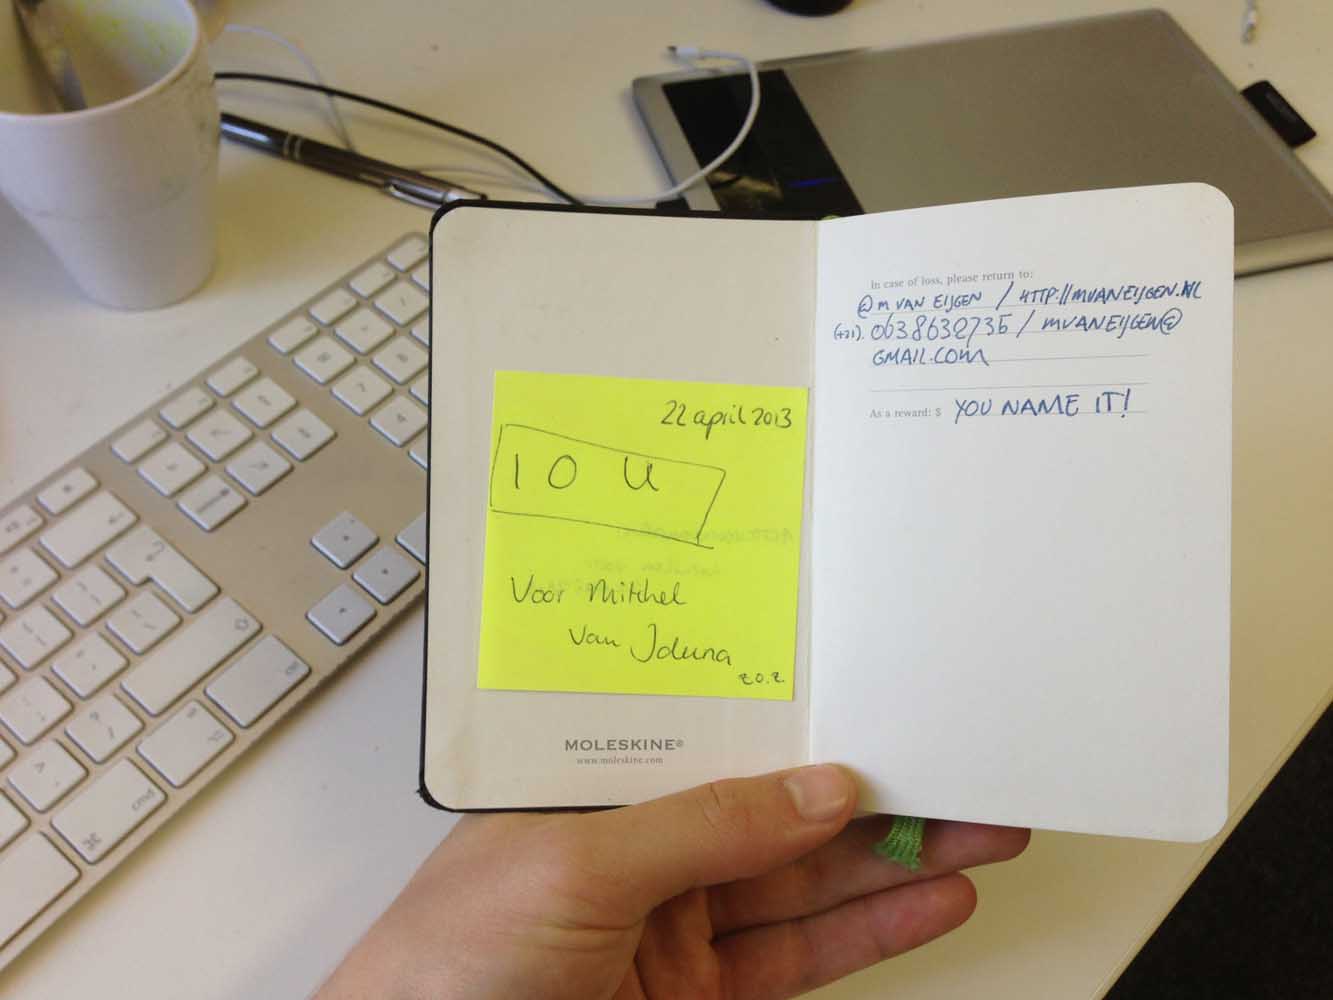 22 april 2013
I O U
Voor Mitchel
van Iduna
z.o.z.
MOLESKINE®
www.moleskine.com
In case of loss, please return to:
@MVANEIJGEN / HTTP://MVANEIJGEN.NL
(+31). 0638632735 / MVANEIJGEN@
GMAIL.COM
As a reward: $ YOU NAME IT!
cmd